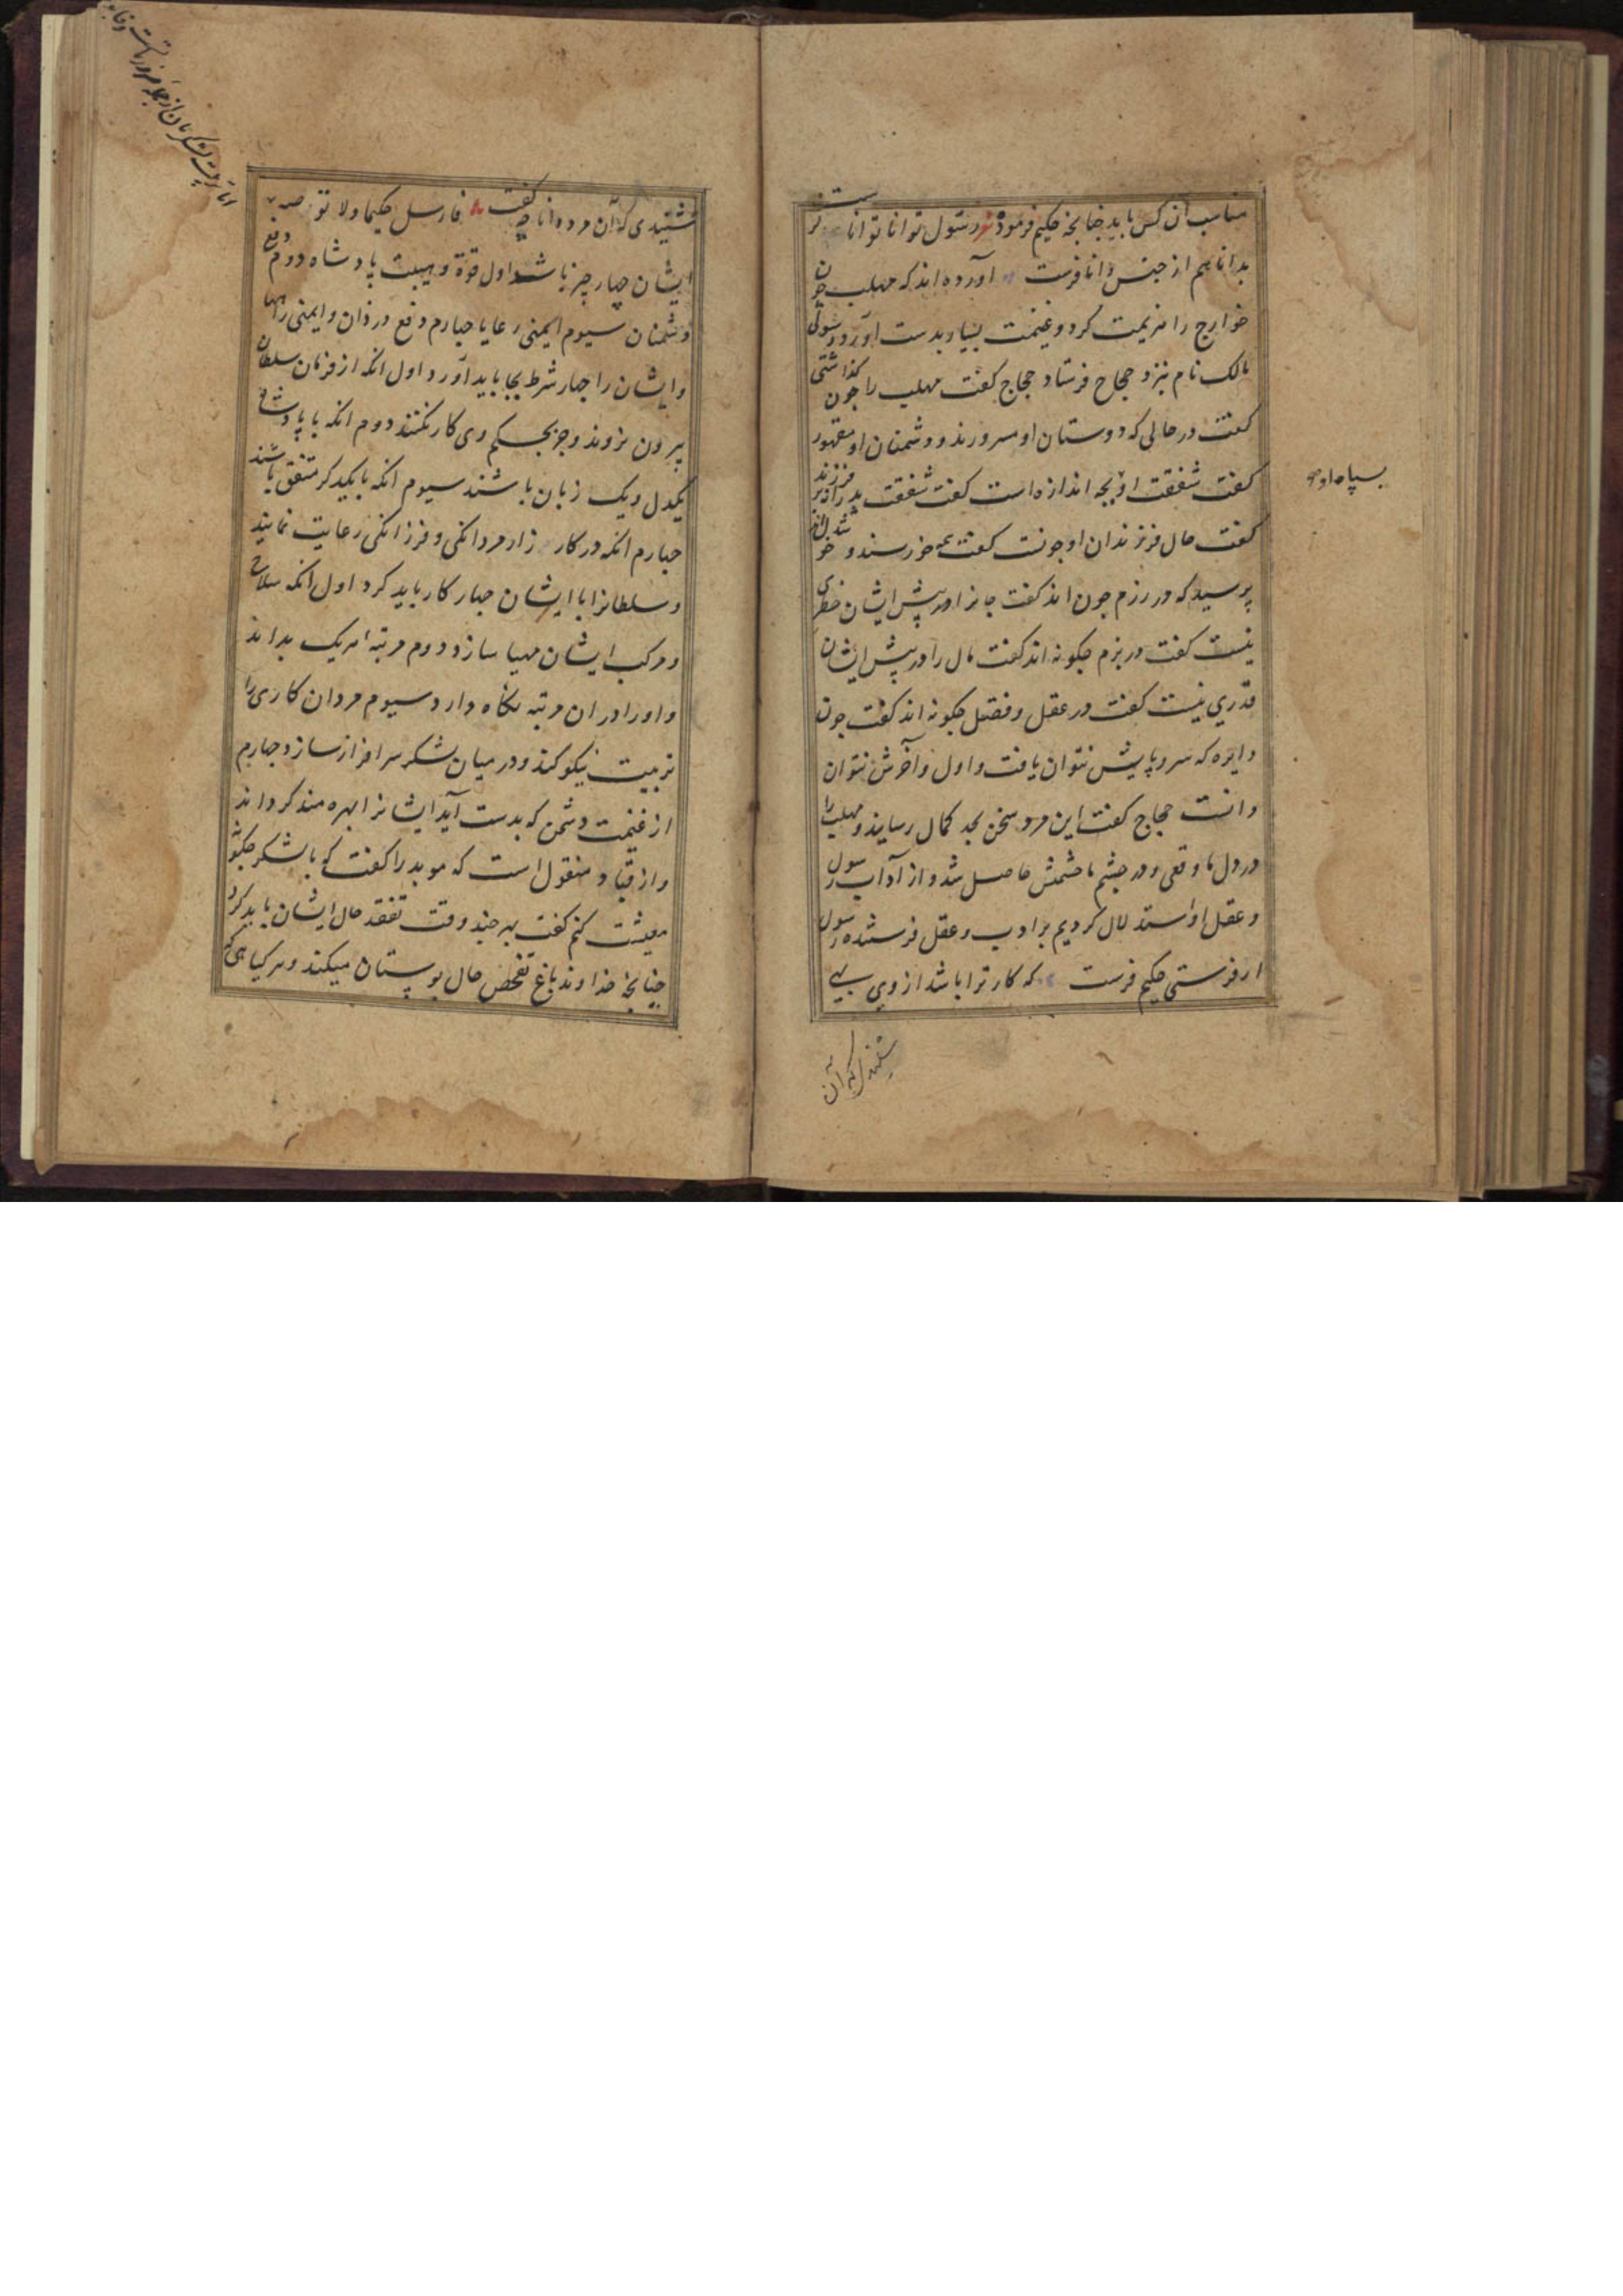 مناسب آن کس باید چنانچه حکیم فرموده شعر رسول توانا توانا فرست
بدانا هم از جنس دانا فرست آورده اند که مهلب چون
خوارج را هزیمت کرد و غنیمت بسیار بدست آورد رسولی
مالک نام بنزد حجاج فرستاد حجاج گفت مهلب را چون گذاشتی
گفت در حالی که دوستان او مسرورند و دشمنان او مقهور
گفت شفقت او بچه اندازه است گفت شفقت پدر
سپاه او
گفت حال فرزندان او چونست گفت همه خورسند و
پرسید که در رزم چون اند گفت جانرا در پیش ایشان خطری
نیست گفت در بزم چکونه اند گفت مال را در پیش ایشان
قدری نیست گفت در عقل و فضل چکونه اند گفت چون
دایره که سر و پایش نتوان یافت و اول و آخرش نتوان
دانست حجاج گفت این مرد سخن بحد کمال رسانید و مهلب را
در دل ما وقعی و در چشم ما حشمتی حاصل شد و از آداب رسول
و عقل او استدلال کردیم بر ادب و عقل فرستنده رسول
ار فرستی حکیم فرست که کار ترا باشد از وی بهی
شنیدی که آن
شنیدی که آن مرد دانا چه گفت فارسل حکیما ولا توصه
ایشان چهار چیز باشد اول قوة و هیبت پادشاه دوم دفع
دشمنان سیوم ایمنی رعایا چهارم دفع دزدان و ایمنی راهها
و ایشان را چهار شرط بجا باید آورد اول آنکه از فرمان سلطان
بیرون نروند و جز بحکم وی کار نکنند دوم آنکه با پادشاه
یکدل و یک زبان باشند سیوم آنکه با یکدیگر متفق باشند
چهارم آنکه در کارزار مردانکی و فرزانکی رعایت نمایند
و سلطانرا با ایشان چهار کار باید کرد اول آنکه سلاح
و مرکب ایشان مهیا سازد دوم مرتبه هر یک بداند
و او را در ان مرتبه نگاه دارد سیوم مردان کاری را
تربیت نیکو کند و در میان لشکر سرافراز سازد چهارم
از غنیمت دشمن که بدست آید ایشانرا بهره مند کرداند
و از قباد منقول است که موبد را گفت که با لشکر چکونه
معیشت کنم گفت بهر چند وقت تفقد حال ایشان باید کرد
چنانچه خداوند باغ تفحص حال بوستان میکند و هر گیاهی که